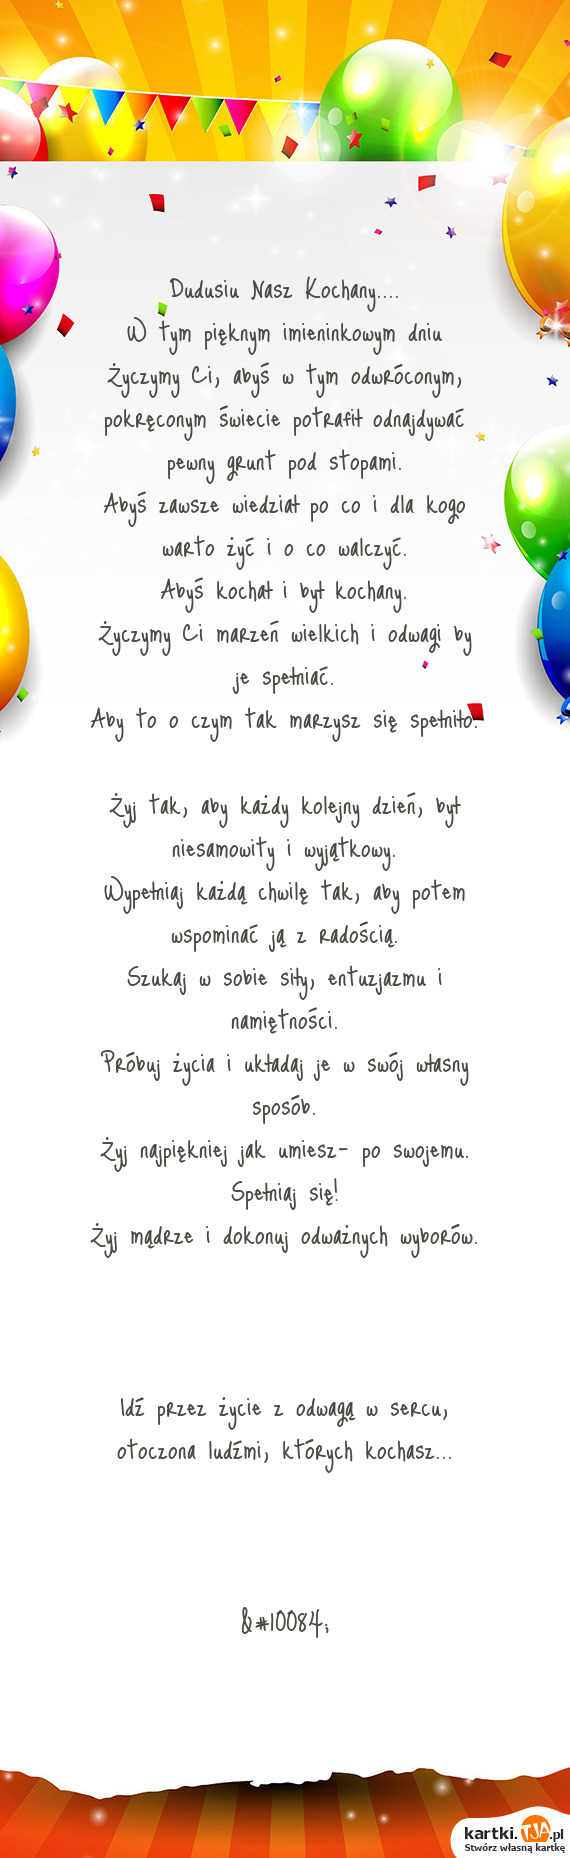 Dudusiu Nasz Kochany....
W tym pięknym imieninkowym dniu
Życzymy Ci, abyś w tym odwróconym,
pokręconym świecie potrafił odnajdywać
pewny grunt pod stopami.
Abyś zawsze wiedział po co i dla kogo
warto żyć i o co walczyć.
Abyś kochał i był kochany.
Życzymy Ci marzeń wielkich i odwagi by
je spełniać.
Aby to o czym tak marzysz się spełniło.
Żyj tak, aby każdy kolejny dzień, był
niesamowity i wyjątkowy.
Wypełniaj każdą chwilę tak, aby potem
wspominać ją z radością.
Szukaj w sobie siły, entuzjazmu i
namiętności.
Próbuj życia i układaj je w swój własny
sposób.
Żyj najpiękniej jak umiesz- po swojemu.
Spełniaj się!
Żyj mądrze i dokonuj odważnych wyborów.
Idź przez życie z odwagą w sercu,
otoczona ludźmi, których kochasz...
&#10084;
kartki.TJA.pl
Stwórz własną kartkę